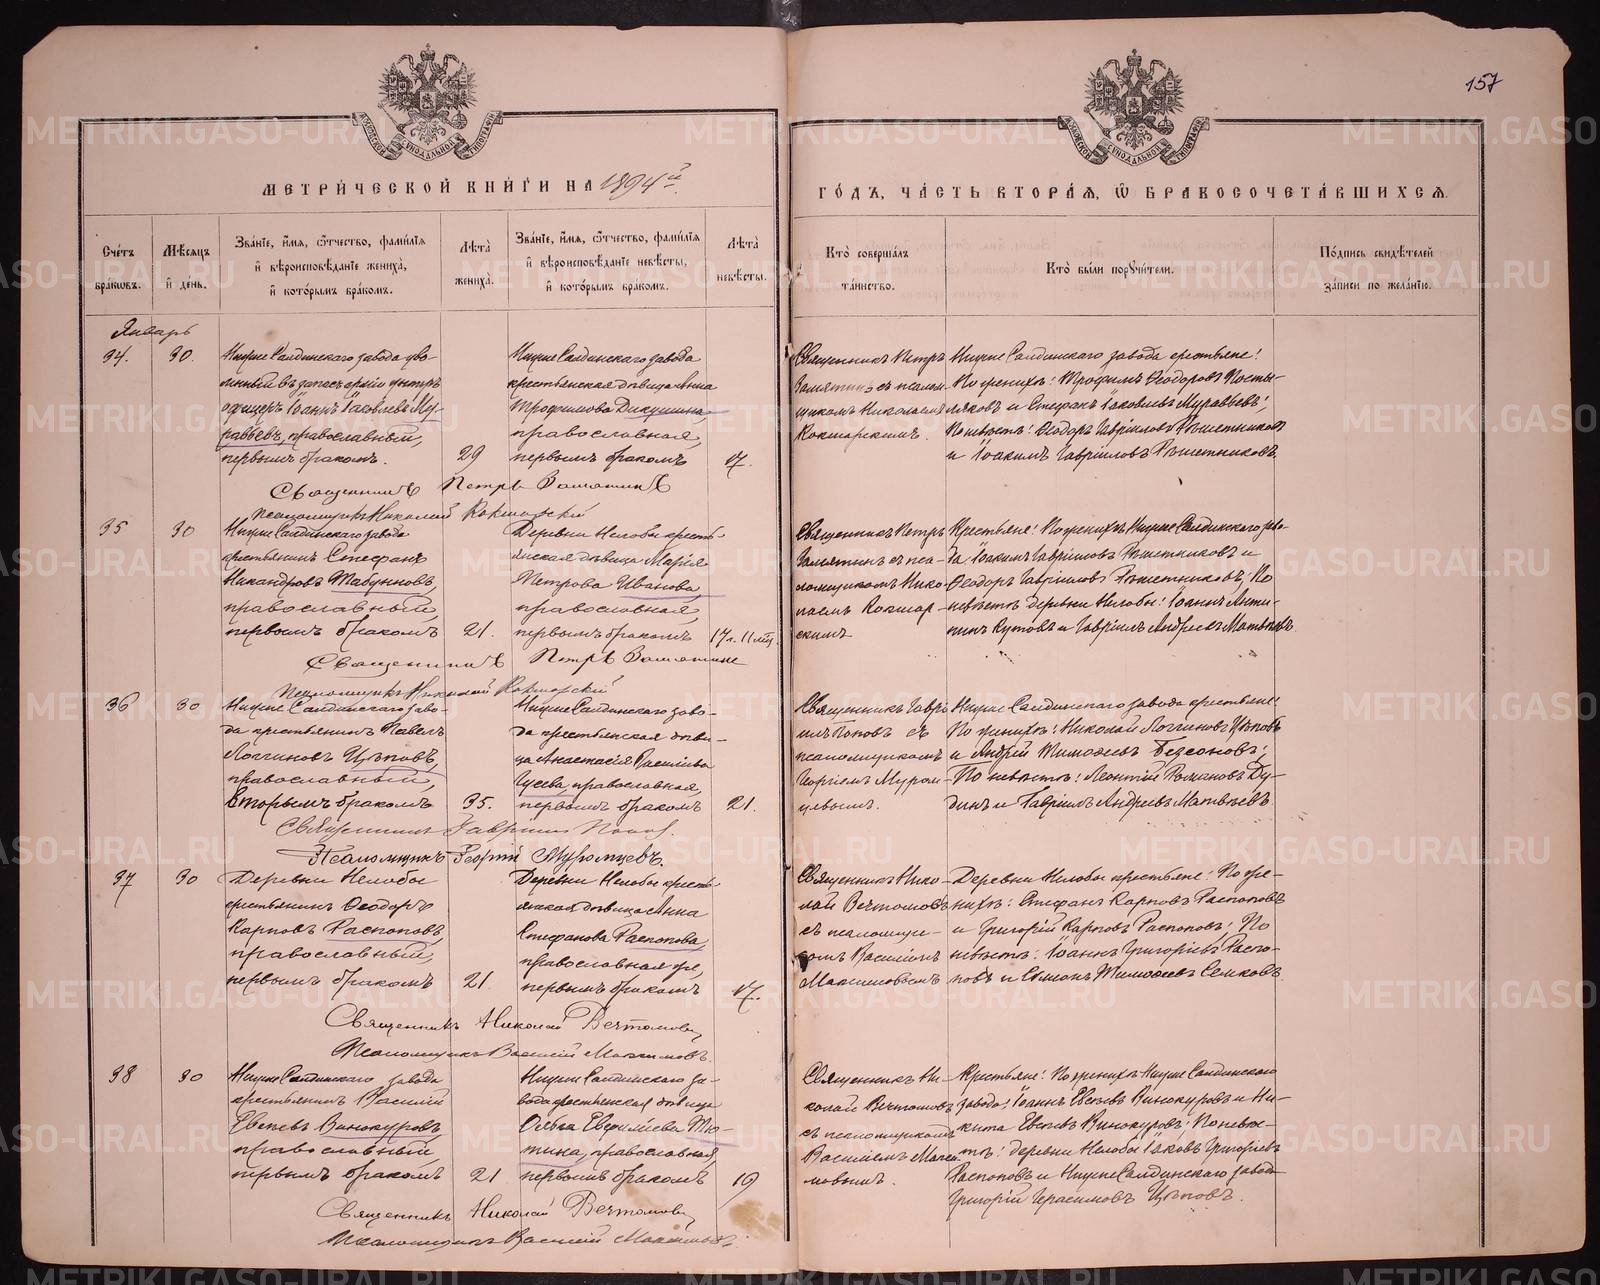 157
МЕТРИ́ЧЕСКОЙ КНИ́ГИ НА 1894й
ГО́ДЪ, ЧА́СТЬ ВТОРА́Я, Ѽ БРАКОСОЧЕТА́ВШИХСЯ.
Сче́тъ бра́кѡвъ.
Мѣ́сяцъ и́ де́нь.
Зва́нїе, и́мя, ѻ́тчество, фами́лїя и́ вѣроисповѣ́данїе жениха̀, и́ кото́рымъ бра́комъ.
Лѣта̀ жениха̀.
Зва́нїе, и́мя, ѻ́тчество, фами́лїя и́ вѣроисповѣ́данїе невѣ́сты, и́ кото́рымъ бра́комъ.
Лѣта̀ невѣ́сты.
Кто̀ соверша́лъ та́инство.
Кто̀ бы́ли порꙋчи́тели.
По́дпись свидѣ́телей за́писи по жела́нїю.
Январь
34.
30.
Нижне Салдинскаго завода уво-
ленный въ запасъ арміи унтеръ
офицеръ Іоаннъ Іаковлевъ Му-
равьевъ, православный,
первымъ бракомъ.
29
Нижне Салдинскаго завода
крестьянская дѣвица Анна
Трофимова Дикушина,
православная,
первымъ бракомъ
17.
Священникъ Петръ
Замятинъ съ псалом-
щикомъ Николаемъ
Кокшарскимъ.
Нижне Салдинскаго завода крестьяне:
По женихѣ: Трофимъ Ѳеодоровъ Посты-
ляковъ и Стефанъ Іаковлевъ Муравьевъ;
По невѣстѣ: Ѳеодоръ Гавріиловъ Рѣшетниковъ
и Іоакимъ Гавріиловъ Рѣшетниковъ.
Священникъ Петръ Замятинъ
Псаломщикъ Николай Кокшарскій
35
30
Нижне Салдинскаго завода
крестьянинъ Стефанъ
Никандровъ Табунновъ,
православный,
первымъ бракомъ
21.
Деревни Нелобы кресть-
янская дѣвица Марія
Петрова Иванова,
православная,
первымъ бракомъ
17 г. 11 мѣс.
Священникъ Петръ
Замятинъ съ пса-
ломщикомъ Нико-
лаемъ Кокшар-
скимъ
Крестьяне: По женихѣ Нижне Салдинскаго заво-
да: Іоакимъ Гавріиловъ Рѣшетниковъ и
Ѳеодоръ Гавріиловъ Рѣшетниковъ; По
невѣстѣ деревни Нелобы: Іоаннъ Анти-
пинъ Кутовъ и Гавріилъ Андреевъ Матвѣевъ.
Священникъ Петръ Замятинъ
Псаломщикъ Николай Кокшарскій
36
30
Нижне Салдинскаго заво-
да крестьянинъ Павелъ
Логгиновъ Цѣповъ,
православный,
вторымъ бракомъ
35.
Нижне Салдинскаго заво-
да крестьянская дѣви-
ца Анастасія Василіева
Гусева, православная,
первымъ бракомъ
21.
Священникъ Гаврі-
илъ Поповъ съ
псаломщикомъ
Георгіемъ Муром-
цевымъ.
Нижне Салдинскаго завода крестьяне:
По женихѣ: Николай Логгиновъ Цѣповъ
и Андрей Тимоѳеевъ Безсоновъ;
По невѣстѣ: Леонтій Романовъ Ду-
динъ и Гавріилъ Андреевъ Матвѣевъ.
Священникъ Гавріилъ Поповъ.
Псаломщикъ Георгій Муромцевъ.
37
30
Деревни Нелобы
крестьянинъ Ѳеодоръ
Карповъ Распоповъ,
православный,
первымъ бракомъ
21.
Деревни Нелобы кресть-
янская дѣвица Анна
Стефанова Распопова,
православная же,
первымъ бракомъ
17.
Священникъ Нико-
лай Вечтомовъ
съ псаломщи-
комъ Василіемъ
Максимовымъ
Деревни Нелобы крестьяне: По же-
нихѣ: Стефанъ Карповъ Распоповъ
и Григорій Карповъ Распоповъ; По
невѣстѣ: Іоаннъ Григоріевъ Распо-
повъ и Симонъ Тимоѳеевъ Семковъ.
Священникъ Николай Вечтомовъ,
Псаломщикъ Василій Максимовъ.
38
30
Нижне Салдинскаго завода
крестьянинъ Василій
Евсѣевъ Винокуровъ,
православный,
первымъ бракомъ
21
Нижне Салдинскаго за-
вода крестьянская дѣвица
Ольга Евфиміева Тю-
тина, православная,
первымъ бракомъ
19
Священникъ Ни-
колай Вечтомовъ
съ псаломщикомъ
Василіемъ Макси-
мовымъ.
Крестьяне: По женихѣ Нижне Салдинскаго
завода: Іоаннъ Евсѣевъ Винокуровъ и Ни-
кита Евсѣевъ Винокуровъ; По невѣс-
тѣ: деревни Нелобы Іаковъ Григоріевъ
Распоповъ и Нижне Салдинскаго завода
Григорій Герасимовъ Цѣповъ.
Священникъ Николай Вечтомовъ,
Псаломщикъ Василій Максимовъ.
METRIKI.GASO-URAL.RU